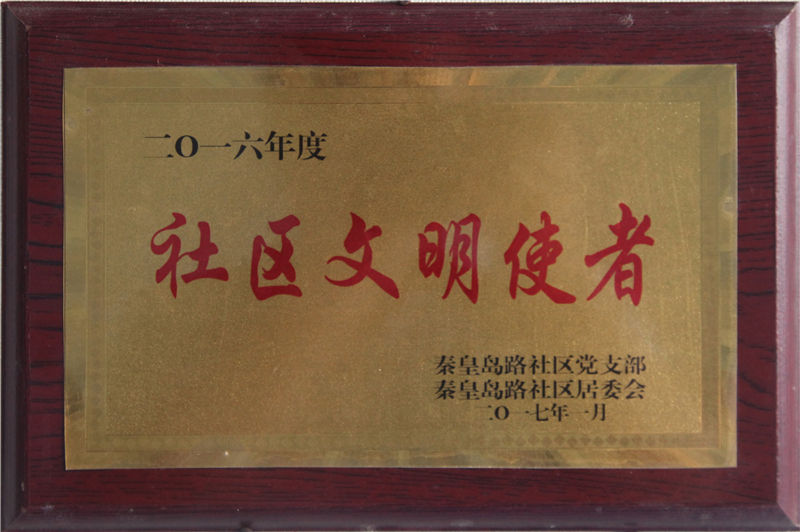 二O一六年度
社区文明使者
秦皇岛路社区党支部
秦皇岛路社区居委会
二O一七年一月